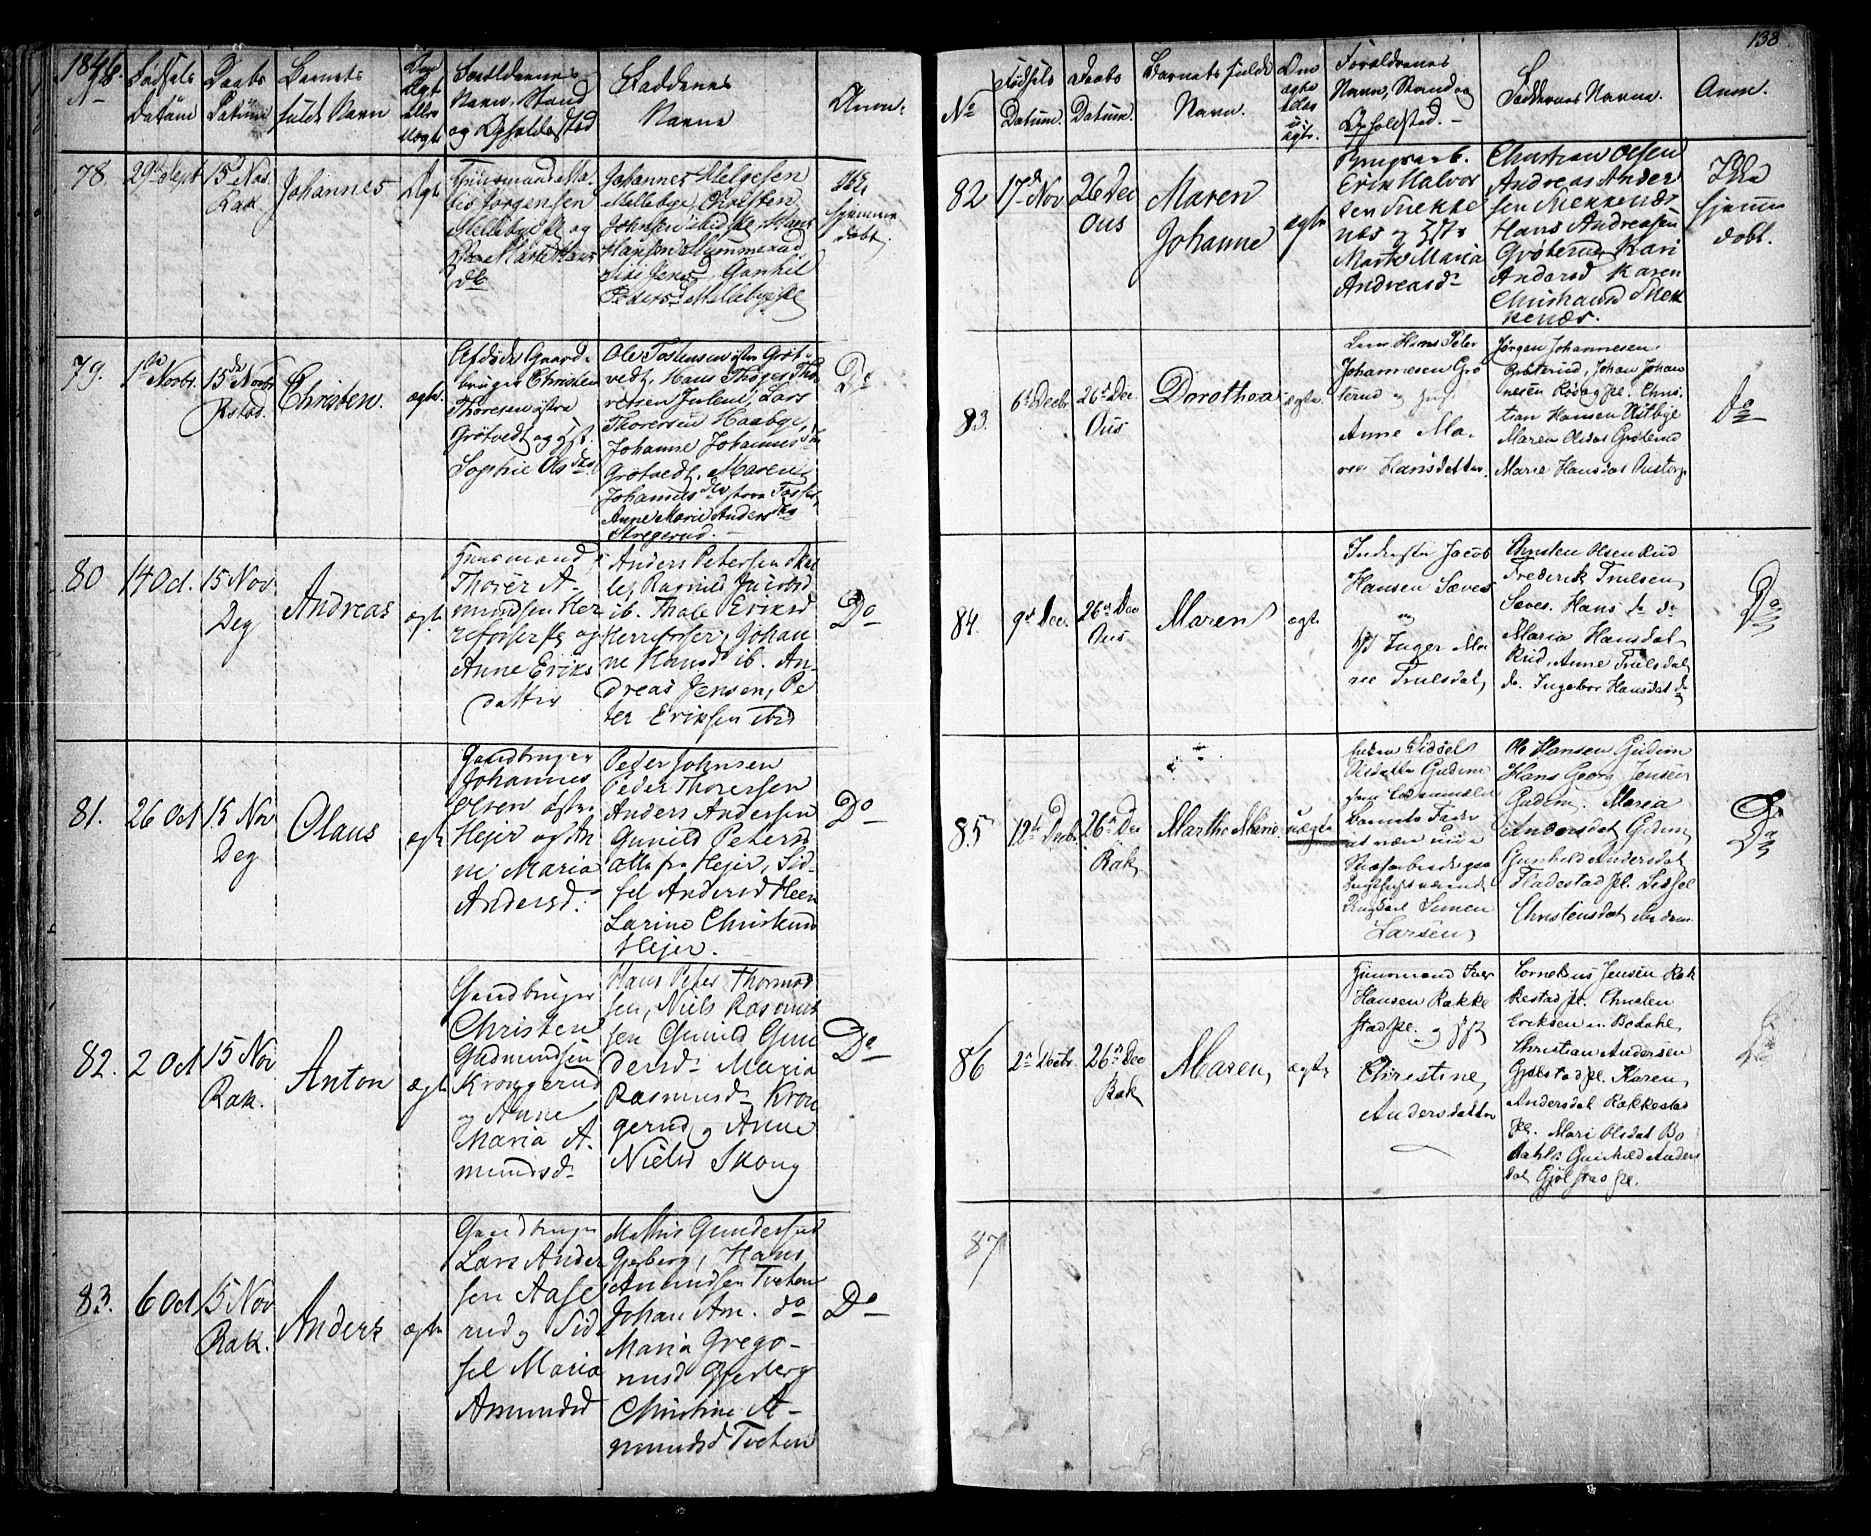 1846.
No
Fødsels
Datum
Daabs
Datum
Barnets
fulde Navn
Om
Ægt
eller
Uægt
Forældrenes
Navn, Stand
og Opholdssted
Faddernes
Navne
Anm:
78.
29de Sept
15d Nov.
Rak.
Johannes
Ægt
Huusmand Ma-
Jørgensen
Mellebye Pl og
Johannes Helgesen
Mellebye, Christen
Johnsen ibid Pl, Hans
Hansen
Jensd, Gunhil
Pedersd Mellebye Pl
Ikke
hjemme
døbt.
79.
1ste Novbr
15de Novbr
Christen.
ægte.
Afdøde Gaard-
bruger Christen
Thoresen østre
Grøtvedt og Hst.
Sophie Olsdtr.
Ole Tostensen østre Grøt-
vedt, Hans
Lars
Thoresen Haabye,
Johanne Johannesdtr
Grøtvedt, Maren
Johannesdtr
Anne Marie Andersdtr
Stregerud.
Do
80
14 Oct.
15 Nov
Deg
Andreas
ægt.
Huusmand
Thorer A-
mundsen Her
refosser Pl og
Anne Eriks
datter
Anders Petersen
Ragnild Jacobsd
ib. Thale Eriksd
Herrefosser, Johan
ne Hansd ib. An-
dreas Jensen, Pe
ter Eriksen ibid
Do
81.
26 Oct
15 Nov
Deg
Olaus
ægt
Gaardbruger
Johannes
Iversen østre
Hejer og An-
ne Maria
Andersd.
Peder Johnsen
Peder Thoresen
Anders Andersen
Gunild Petersd
alle fra Hejer, Sid-
sel Andersd Heen
Larine Christiansd
Hejer.
Do
82.
2 Oct
15 Nov
Rak.
Anton
ægt
Gaardbruger
Christen
Gudmundsen
Kroggerud
og Anne
Maria A-
mundsd.
Hans Peter Thormod
sen, Niels Rasmus
sen Gunild Gun
dersd. Maria
Rasmusd Kron
gerud og Anne
Nielsd Skoug
Do
83.
6 Oct
15 Nov
Rak.
Anders
ægte
Gaardbruger
Lars Ander
sen Aase
rud og Sid
sel Maria
Amundsd
Mathis Gundersen
Gjerberg, Hans
Amundsen Tveten
Johan Am. do
Maria Grego-
riusd Gjerberg
Christine A-
mundsd Tveten
Do
138
No
Fødsels
Datum.
Daabs
Datum.
Barnets fulde
Navn.
Om
ægte
eller
u-
ægte.
Forældrenes
Navn, Stand og
Opholdsted.
Faddernes Navne.
Anm.
82
17de Nov
26 Dec
Ous
Maren
Johanne
ægte
Erik Halvor
sen Snekke
næs og Hst
Marte Maria
Andreasd.
Christian Olsen
Andreas Ander
sen Snekkenæs
Hans Andreasen
Grøterud Kari
Andersd Karen
Christiansd Snek
kenæs.
Ikke
hjemme
døbt.
83.
6te Decbr
26de Dec.
Ous
Dorothea
ægte
Hans Peter
Johannesen Grø
terud og Hst.
Anne Ma-
rie Hansdatter.
Jørgen Johannesen
Johan Johan
nesen pl. Chris-
tian Hansen Østbye
Maren Olsdat Grøterud
Marie Hansdat
Do
84.
9de Dec.
26de Dec
Ous
Maren
ægte
Inderste Jacob
Hansen Sæves
og
Hst Inger Ma
rie Trulsdat,
Christen Olsen Rud
Frederik Trulsen,
Sæves. Hans do do
Maria Hansdat
Rud, Anne Trulsdat,
do. Ingebor Hansdat do
Do
85
12te Decbr
26de Dec
Rak
Marthe Marie
uægte
Sidsel
Olsdatter Gudem
Simen
Larsen
Ole Hansen Gudem
Hans Georg Jensen
Gudem. Maria
Andersdat Gudem,
Gunhild Andersdat
Fladestad pl. Sidsel
Christensdat Gudem
Do
86
2de Decbr.
26de Dec
Rak
Maren
ægte
Huusmand Iver
Hansen Rakke
stad pl. og Hst
Christine
Andersdatter
Cornelius Jensen Rak
kestad pl. Christen
Eriksen Bødahl,
Christian Andersen
Gjølstad pl. Karen
Andersdat Rakkestad
pl. Mari Olsdat Bø
dahl: Gunhild Anders
dat Gjølstad pl.
Do
87